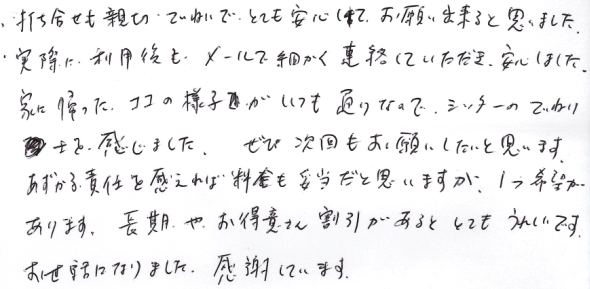 ・打ち合せも親切・ていねいで、とても安心して、お願い出来ると思いました。
・実際に利用後も、メールで細かく連絡していただき、安心しました。
家に帰ったココの様子がいつも通りなので、シッターのていねい
さを感じました。ぜひ次回もお願いしたいと思います。
あずかる責任を考えれば料金も妥当だと思いますが、1つ希望が
あります。長期や、お得意さん割引があるととてもうれしいです。
お世話になりました。感謝しています。